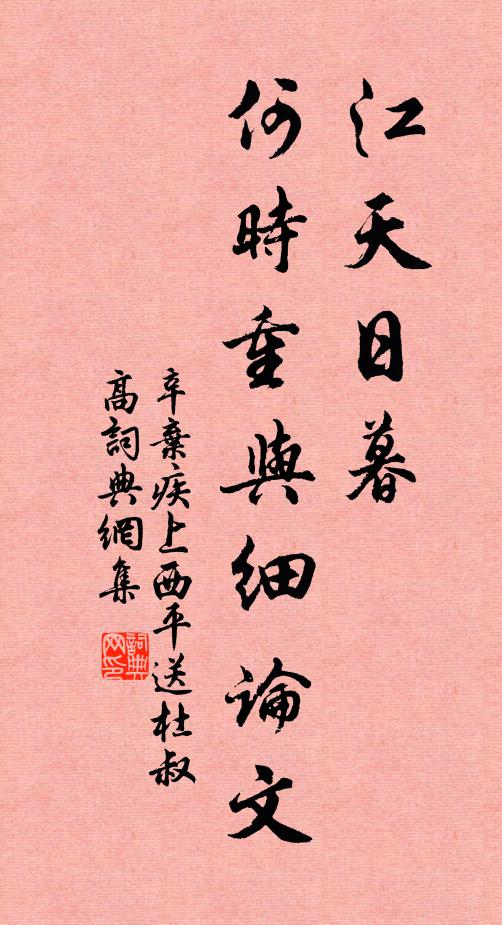 江天日暮
何時重與細論文
辛棄疾上西平送杜叔
高詞典網集
詞典
网印